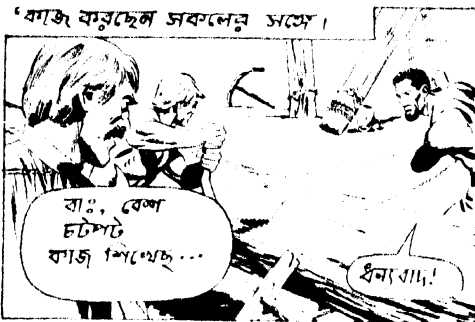 'কাজ করছেন সকলের সঙ্গে।
বাঃ, বেশ
চটপট
কাজ শিখেছ...
ধন্যবাদ!